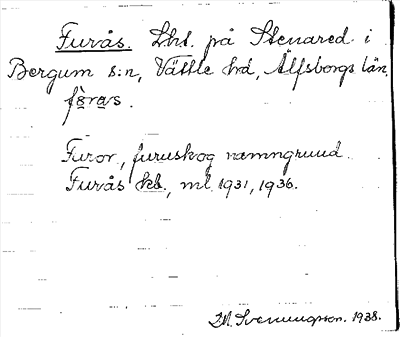 Furås. Lht. på Stenared i
Bergum s:n, Vättle hd, Älfsborgs län.
fùras.
Furor, furuskog namngrund.
Furås kb., ml. 1931, 1936.
I.M. Svenungsson. 1938.